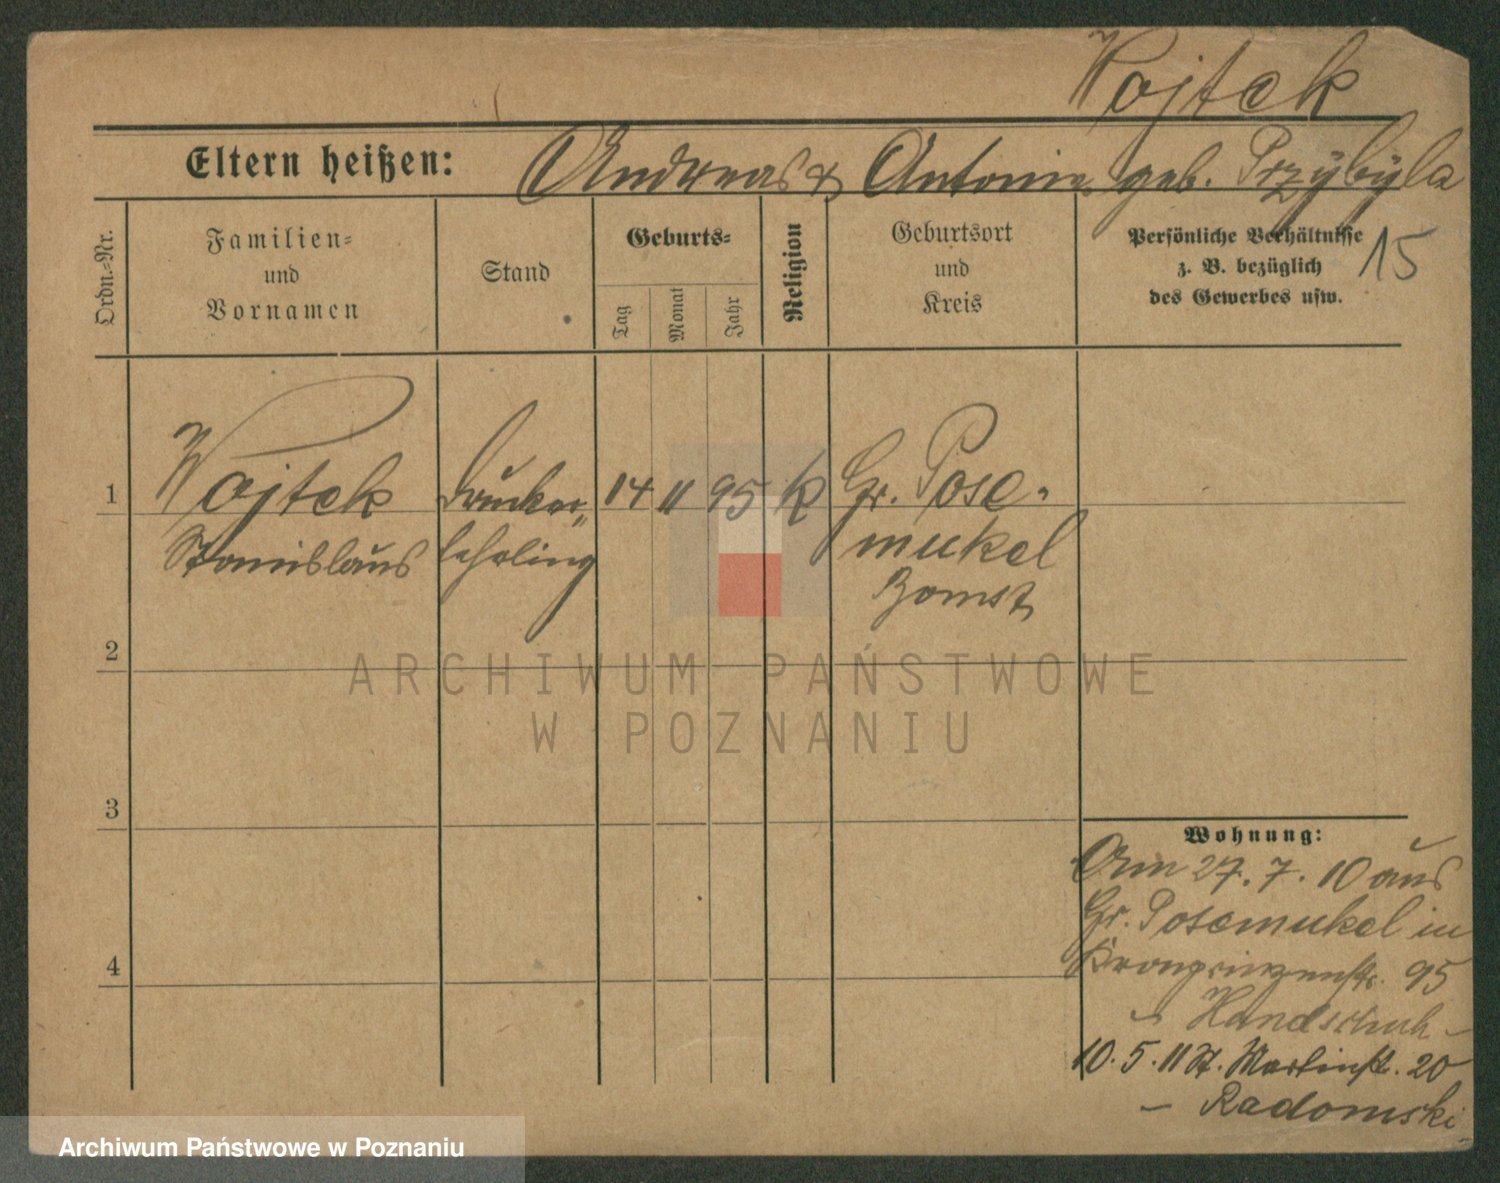 Wojtek
Eltern heißen: Andreas & Antonie geb. Przybyla
Ordn.-Nr.
Familien-
und
Vornamen
Stand
Geburts-
Tag
Monat
Jahr
Religion
Geburtsort
und
Kreis
Persönliche Verhältnisse
z. B. bezüglich
des Gewerbes usw.
15
1 Wojtek Drucker- 14 11 95 k Gr. Pose-
Stanislaus lehrling mukel
Bomst
2
3
4
Wohnung:
Am 27. 7. 10 aus
Gr. Posemukel in
Kronprinzenstr. 95
- Handschuh -
10. 5. 11 St. Martinstr. 20
- Radomski -
ARCHIWUM PAŃSTWOWE
W POZNANIU
Archiwum Państwowe w Poznaniu